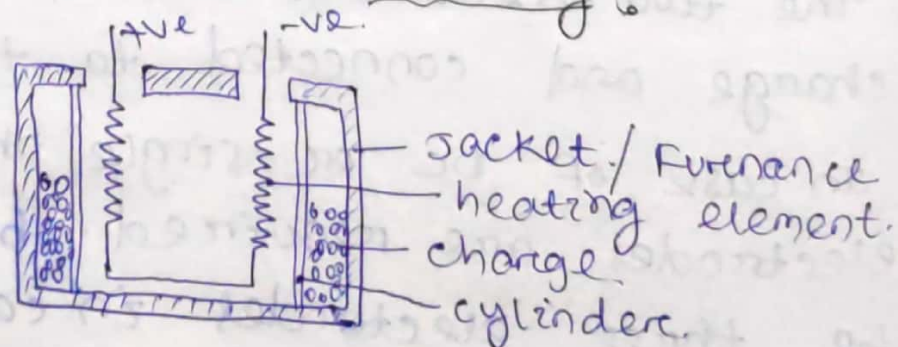 +ve -ve.
Jacket / Furenance
heating element.
charge
cylinderc.